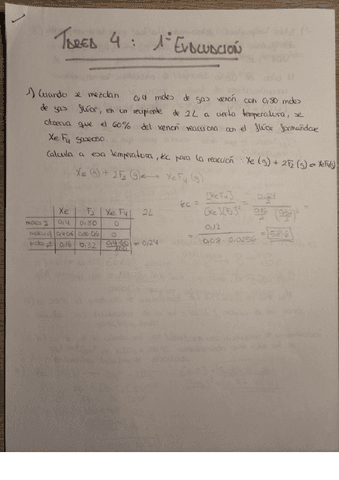 TAREA 4 : 1ª EVALUACIÓN
1) Cuando se mezclan 0,4 moles de gas xenón con 0,80 moles
de gas flúor, en un recipiente de 2L a cierta temperatura, se
observa que el 60% del xenón reacciona con el flúor formándose
XeF4 gaseoso.
Calcula a esa temperatura, Kc para la reacción: Xe (g) + 2F2 (g) ⇌ XeF4(g)
Xe (g) + 2F2 (g) ⟷ XeF4 (g)
Xe F2 XeF4 2L
0,4 0,80 0
0
0,16 0,32 = 0,24
Kc = [XeF4] / [Xe][F2]² =
= 0,12 / 0,08 · 0,0256 =